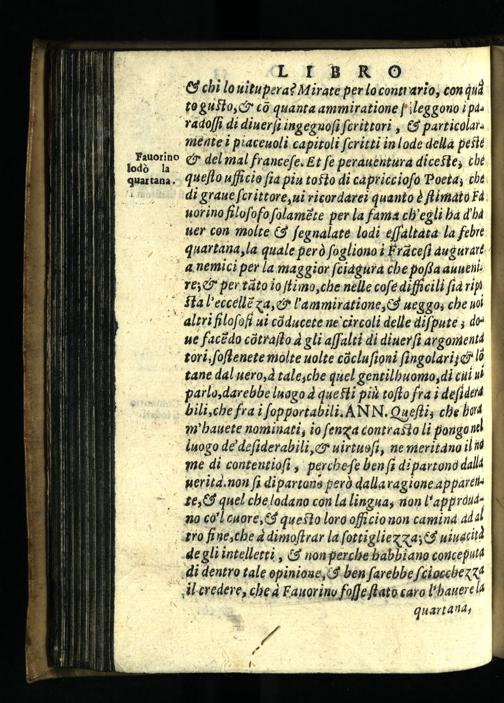 LIBRO
& chi lo uitupera? Mirate per lo contrario, con quã
to gusto, & cõ quanta ammiratione si leggono i pa-
radossi di diuersi ingegnosi scrittori, & particolar-
mente i piaceuoli capitoli scritti in lode della peste
Fauorino
lodò la
quartana.
& del mal francese. Et se perauentura diceste, che
questo ufficio sia piu tosto di capriccioso Poeta, che
di graue scrittore, ui ricorderei quanto è stimato Fa
uorino filosofo solamẽte per la fama ch'egli ha d'ha
uer con molte & segnalate lodi essaltata la febre
quartana, la quale però sogliono i Frãcesi augurare
a nemici per la maggior sciagura che possa auueni-
re; & per tãto io stimo, che nelle cose difficili sia ripo
sta l'eccellẽza, & l'ammiratione, & ueggo, che uoi
altri filosofi ui cõducete ne' circoli delle dispute, do-
ue facẽdo cõtrasto à gli assalti di diuersi argomenta
tori, sostenete molte uolte cõclusioni singolari, & lõ
tane dal uero, à tale, che quel gentilhuomo, di cui ui
parlo, darebbe luogo à questi più tosto fra i desidera
bili, che fra i sopportabili. ANN. Questi, che hora
m'hauete nominati, io senza contrasto li pongo nel
luogo de' desiderabili, & uirtuosi, ne meritano il no
me di contentiosi, perche se ben si dipartono dalla
uerità. non si dipartono però dalla ragione apparen-
te, & quel che lodano con la lingua, non l'approua-
no co'l cuore, & questo loro officio non camina ad al
tro fine, che à dimostrar la sottigliezza, & uiuacità
de gli intelletti, & non perche habbiano conceputa
di dentro tale opinione, & ben sarebbe sciocchezza
il credere, che à Fauorino fosse stato caro l'hauere la
quartana,